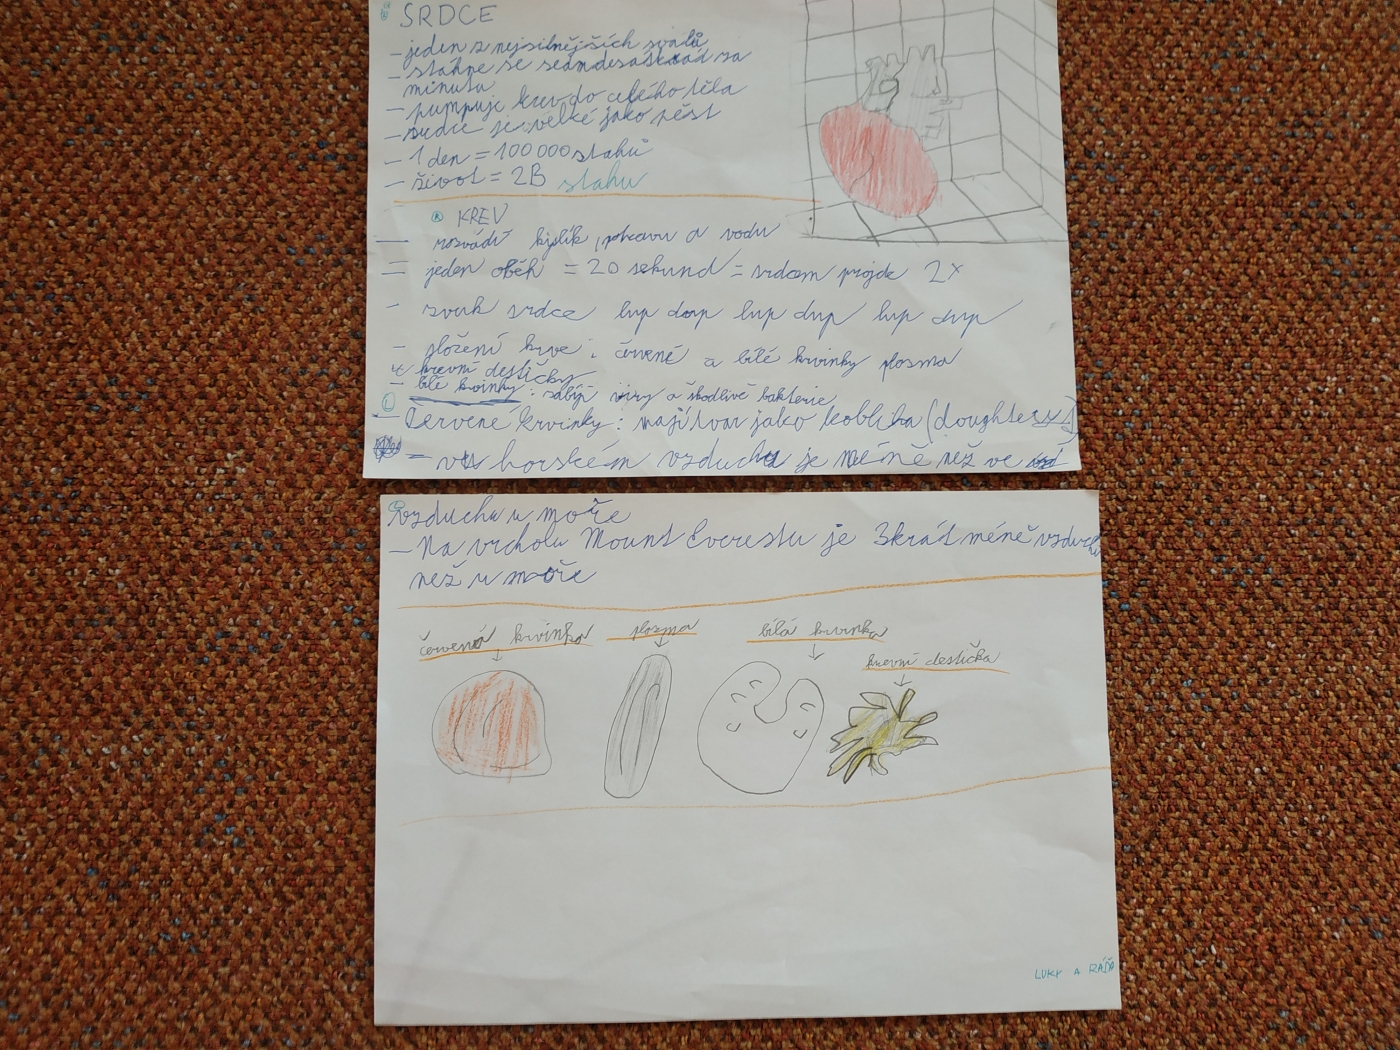 SRDCE
- jeden z nejsilnějších svalů
- stáhne se sedmdesátkrát za
minutu
- pumpuje krev do celého těla
- srdce je velké jako pěst
- 1 den = 100 000 stahů
- život = 2B stahu
KREV
- rozvádí kyslík, potravu a vodu
- jeden oběh = 20 sekund = srdcem projde 2x
- zvuk srdce lup dup lup dup lup dup
- složení krve: červené a bílé krvinky plazma
krevní destičky
- bílé krvinky: zabíjí viry a škodlivé bakterie
- Červené krvinky: mají tvar jako kobliha (doughte
- v horském vzduchu je méně než ve
vzduchu u moře
- Na vrcholu Mount Everestu je 3krát méně vzduchu
než u moře
červená krvinka
plazma
bílá krvinka
krevní destička
LUKY A RÁĎA